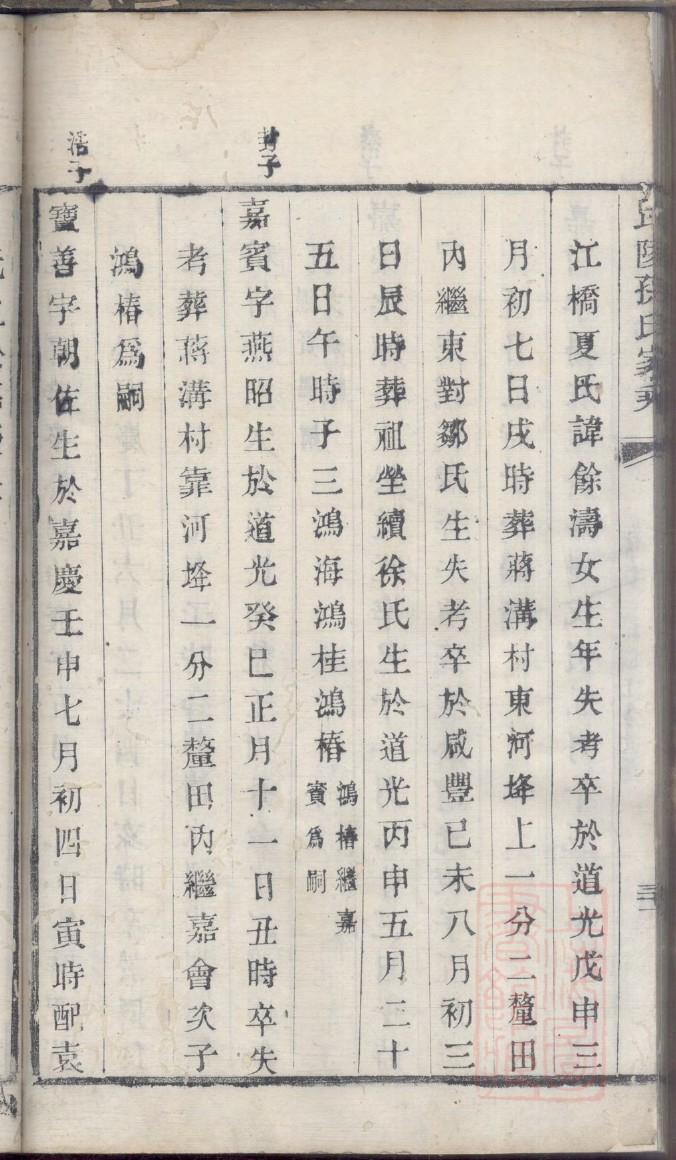 江橋夏氏諱餘濤女生年失考卒於道光戊申三
月初七日戌時葬蔣溝村東河垾上一分二釐田
內繼東對鄒氏生失考卒於咸豐己未八月初三
日辰時葬祖塋續徐氏生於道光丙申五月二十
五日午時子三鴻海鴻桂鴻椿
鴻椿繼嘉
賓爲嗣
封子
嘉賓字燕昭生於道光癸巳正月十一日丑時卒失
考葬蔣溝村靠河垾一分二釐田內繼嘉會次子
鴻椿爲嗣
浩子
寶善字朝佐生於嘉慶壬申七月初四日寅時配袁
孫氏家乘